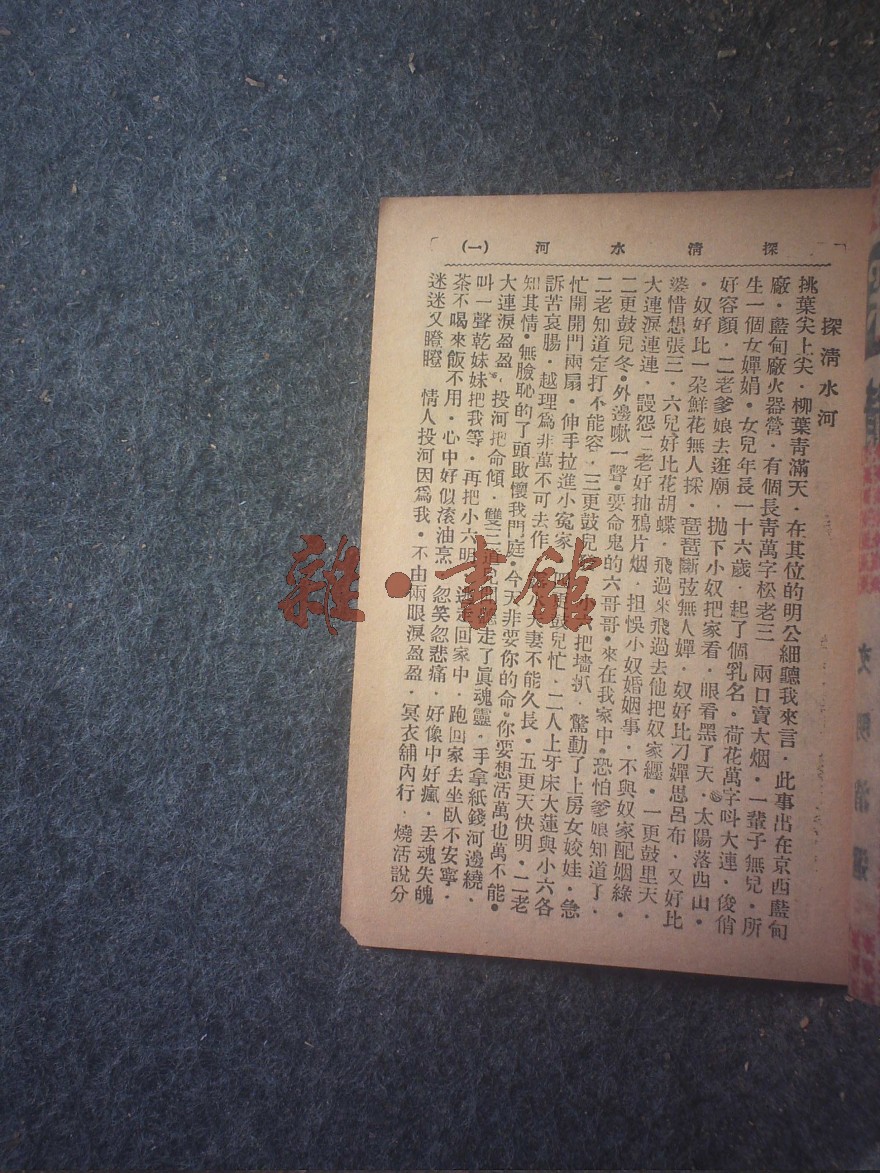 探清水河 (一)
探清水河
挑葉尖上尖．柳葉青滿天．在其位的明公細聽我來言．此事出在京西藍甸
廠．藍甸廠火器營．有個長青萬字松老三 兩口賣大烟．一輩子無兒．所
生一個女嬋娟．女兒年長一十六歲．起了個乳名．荷花萬字呌大連．俊俏
好容顏．二老爹娘去逛廟．拋下小奴把家看．眼看黑了天．太陽落西山．
．奴好比一朶鮮花無人採．琵琶斷弦無人嬋．奴好比刁嬋思呂布．又好比
婆惜想張三．六兒好比花胡蝶 飛過來飛過去他把奴家纏．一更鼓里天．
大連淚連連．謾怨二老好抽鴉片烟．担悞小奴婚姻事 不與奴家配姻綠．
二更鼓兒冬．外邊嗽一聲．要命鬼的六哥哥．來在我家中．恐怕爹娘知道了．
二老知道定打不能容．三更鼓兒 把墻扒．驚動了上房女姣娃．急
忙開開門兩扇．伸手拉進小寃家 鼓兒忙．二人上牙床大蓮與小六各
訴苦哀腸．越理爲非萬不可去作 夫妻不能久長．五更天快明．二老
知其情．無臉恥的了頭敢懷我門庭．今天非要你的命．你要想活萬也萬不能．
大連淚盈盈．投河把命傾．雙三 走了眞魂靈．手拿紙錢河邊繞．
叫一聲乾妹妹把我等．再把小六明 逃走回家中．跑回家去坐臥不安寧．
茶不喝來飯不用．心中好似滚油烹 忽笑忽悲痛．好像中好瘋．丢魂失魄
迷迷又瞪瞪 情人投河因爲我．不由兩眼淚盈盈．冥衣舖內行．燒活說分
文明
雜·書館